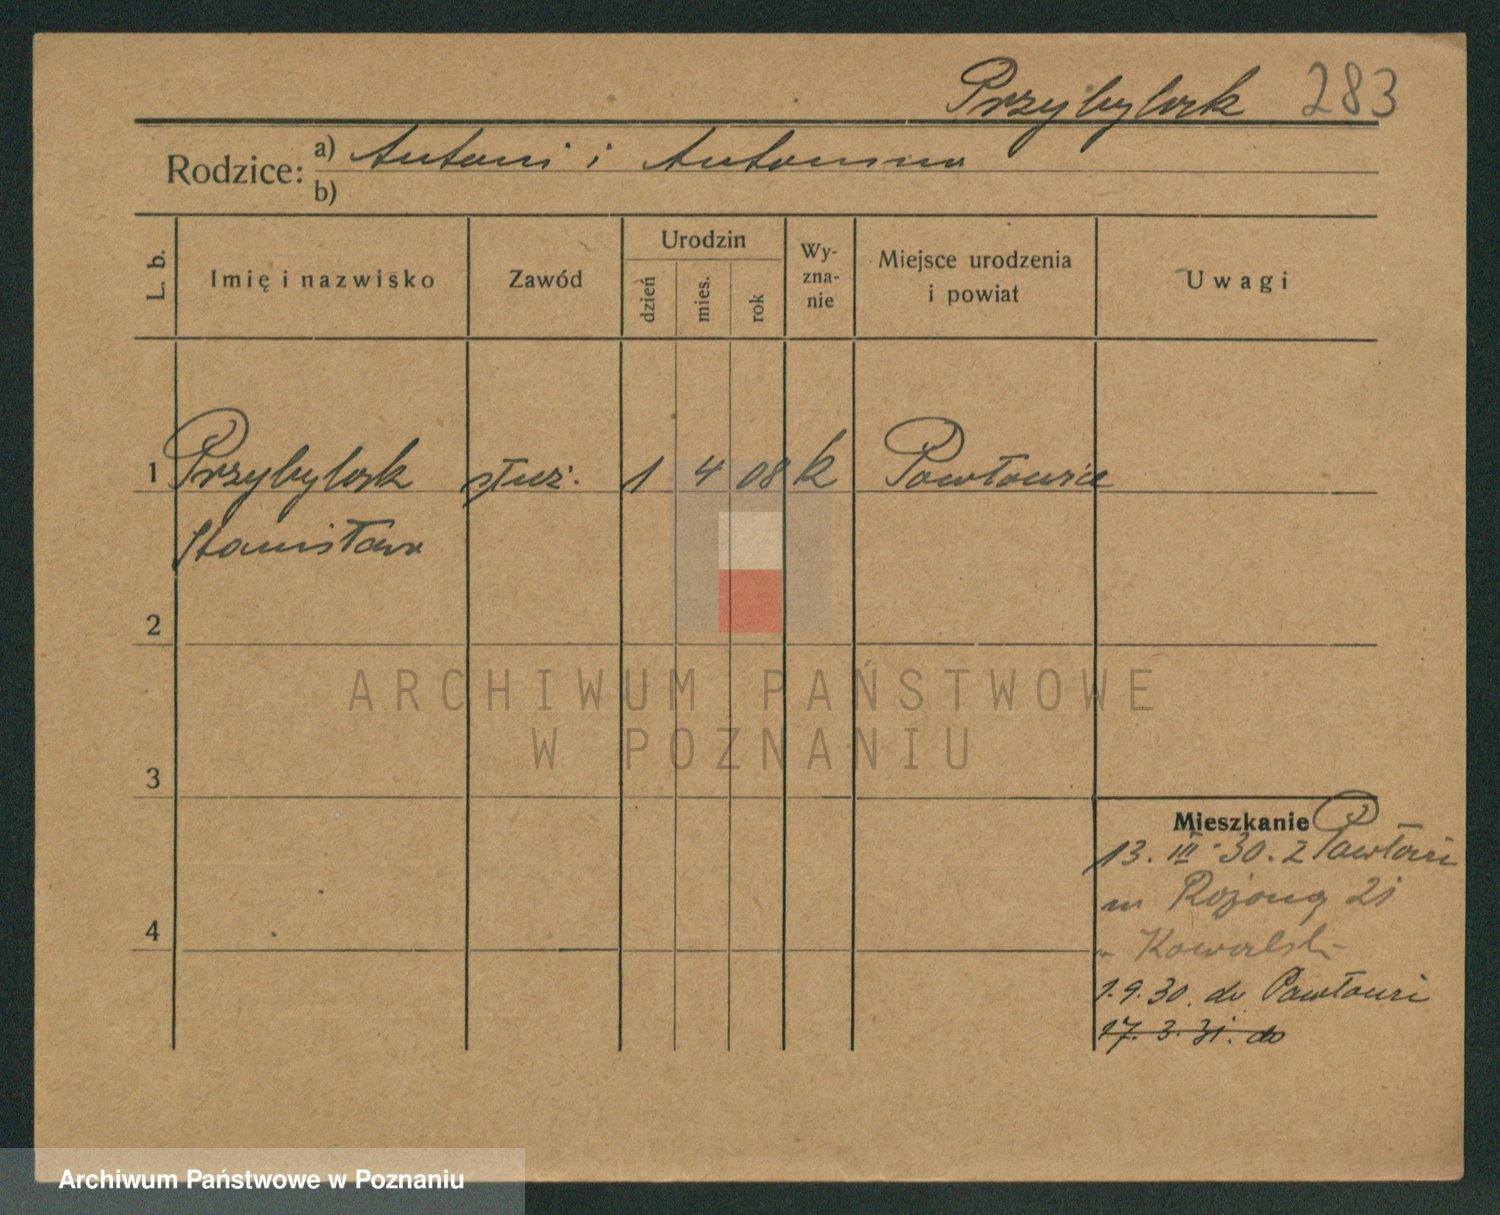 Przybylsk 283
Rodzice: a) Antoni i Antonina
b)
L. b. Imię i nazwisko Zawód Urodzin dzień mies. rok Wyznanie Miejsce urodzenia i powiat Uwagi
1 Przybylsk służ. 1 4 08 k Pawłowice
Stanisława
2
ARCHIWUM PAŃSTWOWE
W POZNANIU
3
Mieszkanie
13. III. 30. z Pawłowi
4
Kowalsk
1.9.30. do Pawłowi
17. 3. 31. do
Archiwum Państwowe w Poznaniu